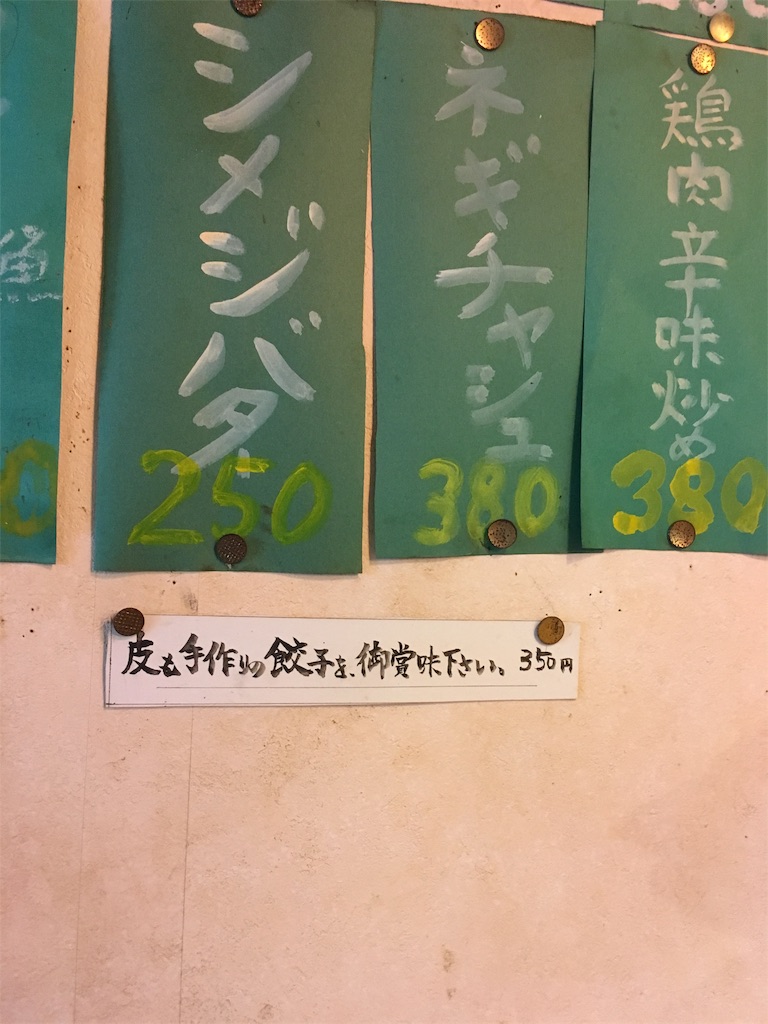 鶏肉辛味炒め
380
ネギチャシュ
380
シメジバタ
250
魚
0
皮も手作りの餃子を、御賞味下さい。 350円